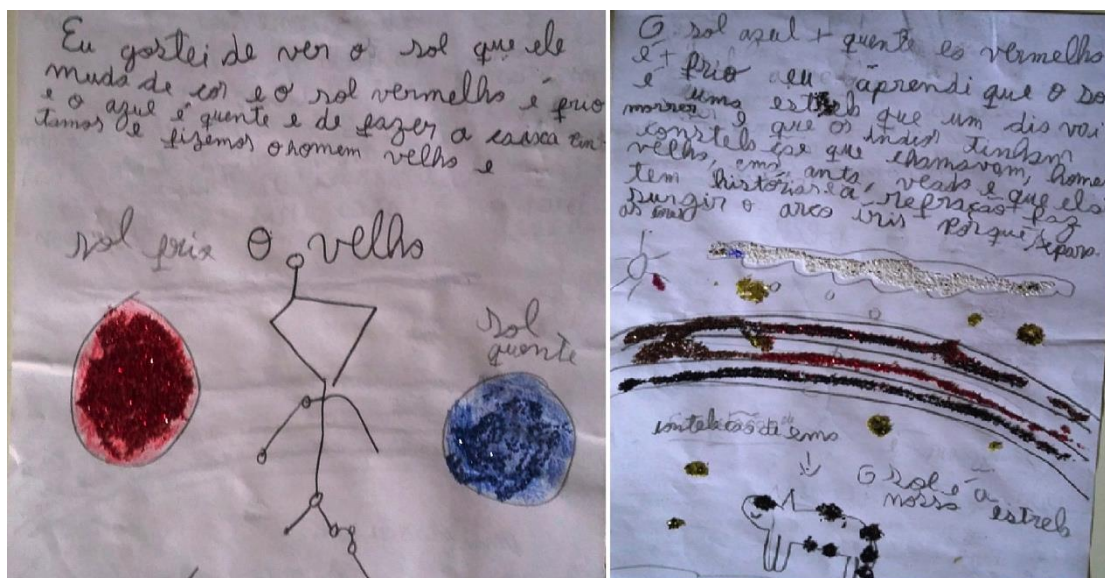 Eu gostei de ver o sol que ele
muda de cor e o sol vermelho é frio
e o azul é quente e de fazer a caixa
tamos e fizemos o homem velho e
sol frio
O velho
sol
quente
O sol azul + quente eo vermelho
é + frio eu aprendi que o sol
é uma estrela que um dia vai
morrer e que os índios tinham
que chamavam, homem
velho, ema, anta, veado e que elas
tem histórias a refração faz
surgir o arco iris porque separa
as cores
de ema
O sol é a
nossa estrela